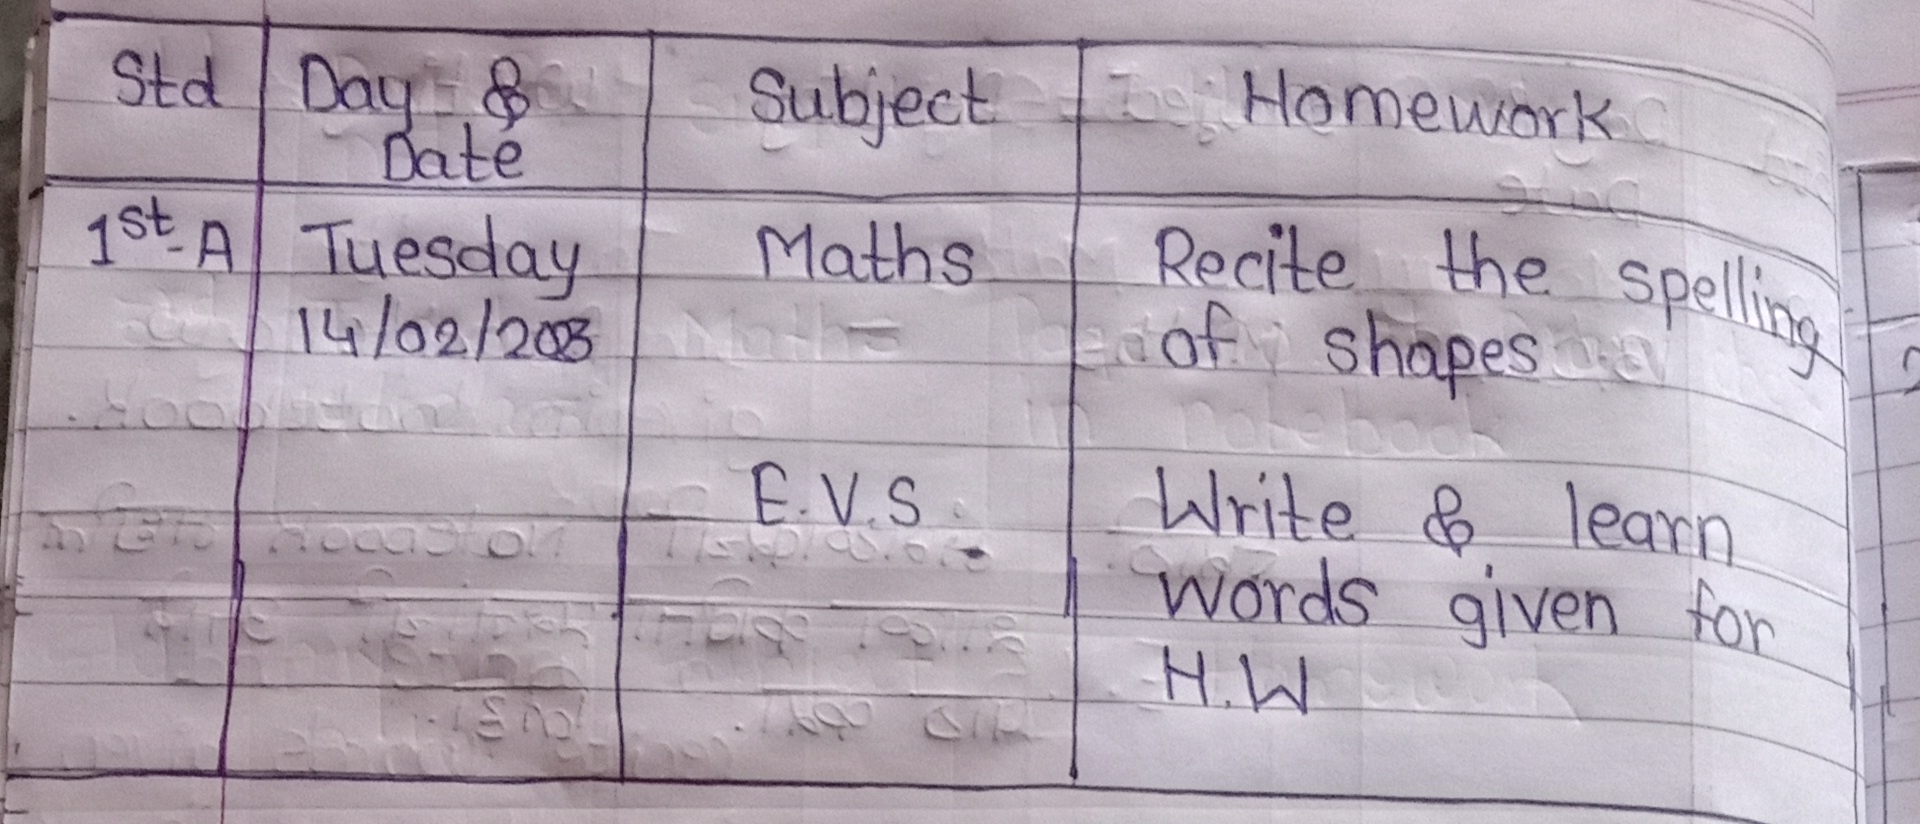 Std Day & Subject Homework
Date
1st-A Tuesday Maths Recite the spelling
14/02/2023 of shapes
E.V.S. Write & learn
words given for
H.W